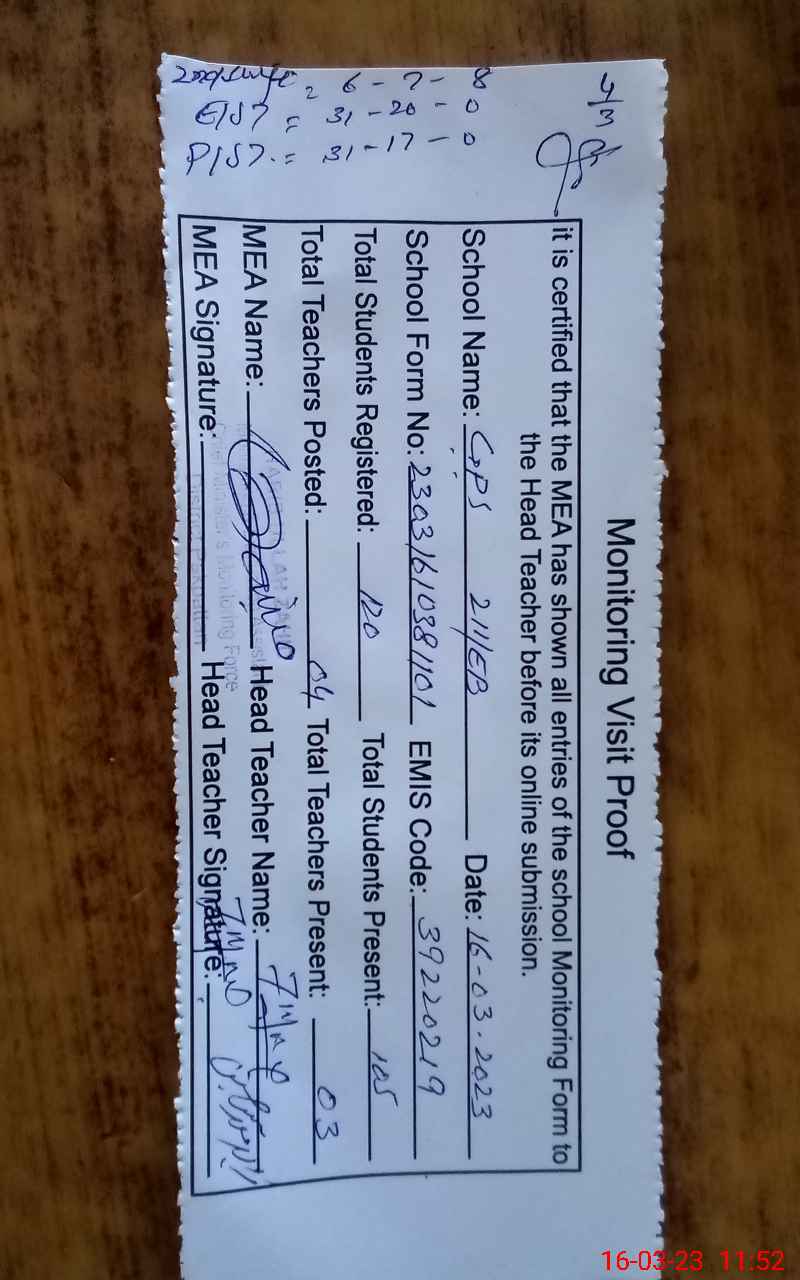 Monitoring Visit Proof
it is certified that the MEA has shown all entries of the school Monitoring Form to
the Head Teacher before its online submission.
School Name: GPS 211/EB Date: 16-03-2023
School Form No: 23031610381101 EMIS Code: 39220219
Total Students Registered: 120 Total Students Present: 105
Total Teachers Posted: 04 Total Teachers Present: 03
MEA Name: Head Teacher Name:
MEA Signature: Head Teacher Signature:
Chief Minister's Monitoring Force
District Pakpattan
6 - 7 - 8
E/S7 " 31 - 20 - 0
P/S7. " 31 - 17 - 0
16-03-23 11:52